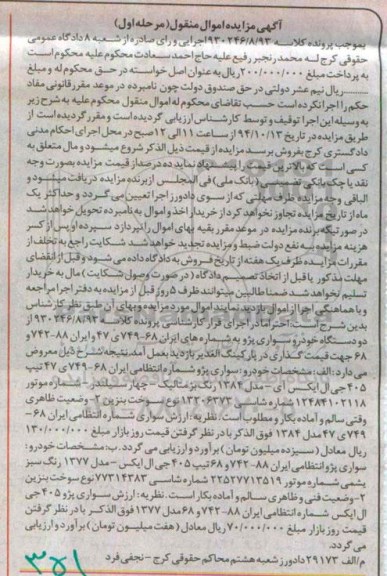 آگهی مزایده اموال منقول (مرحله اول)
بموجب پرونده کلاسه ۹۳۰۲۴۶/۸/۹۳ اجرایی و رای صادره از شعبه ۸ دادگاه عمومی
حقوقی کرج له محمد رنجبر رفیع علیه حاج احمد سعادت محکوم علیه محکوم است
به پرداخت مبلغ ۲۰۰/۰۰۰/۰۰۰ ریال به عنوان اصل خواسته در حق محکوم له و مبلغ
ریال نیم عشر دولتی در حق صندوق دولت چون نامبرده در موعد مقرر قانونی مفاد
حکم را اجرا نکرده است حسب تقاضای محکوم له اموال منقول محکوم علیه به شرح زیر
به وسیله این اجرا توقیف و توسط کارشناس ارزیابی گردیده است و مقرر گردیده است از
طریق مزایده در تاریخ ۹۴/۱۰/۱۳ از ساعت ۱۱ الی ۱۲ صبح در محل اجرای احکام مدنی
دادگستری کرج بفروش برسد مزایده از قیمت ذیل الذکر شروع میشود و مال متعلق به
کسی است که بالاترین قیمت را پیشنهاد نماید ده درصد از قیمت مزایده بصورت وجه
نقد یا چک بانکی تضمینی (بانک ملی) فی المجلس از برنده مزایده دریافت میشود و
الباقی وجه مزایده ظرف مهلتی که از سوی دادورز اجرا تعیین می گردد و حداکثر یک
ماه از تاریخ مزایده تجاوز نخواهد کرد از خریدار اخذ و اموال به نامبرده تحویل خواهد شد
در صورتیکه برنده مزایده در موعد مقرر بقیه بهای اموال را نپردازد سپرده او پس از کسر
هزینه مزایده به نفع دولت ضبط و مزایده تجدید خواهد شد شکایت راجع به تخلف از
مقررات مزایده ظرف یک هفته از تاریخ فروش به دادگاه داده می شود و قبل از انقضای
مهلت مذکور یا قبل از اتخاذ تصمیم دادگاه (در صورت وصول شکایت) مال به خریدار
تسلیم نخواهد شد ضمنا طالبین میتوانند ظرف ۵ روز قبل از مزایده به دفتر اجرا مراجعه
و با هماهنگی اجرا از اموال بازدید نمایند اموال مورد مزایده و بهای آن طبق نظر کارشناس
بدین شرح است احتراما در اجرای قرار کارشناسی پرونده کلاسه ۹۳۰۲۴۶/۸/۹۳
دو دستگاه خودرو سواری پژو به شماره های ایران ۶۸-۷۴۹ی۴۷ و ایران ۸۸-۷۴۲و
۶۸ جهت قیمت گذاری در پارکینگ الغدیر بازدید بعمل آمد نتیجه بشرح ذیل معروض
می دارد: الف: مشخصات خودرو: سواری پژو شماره انتظامی ایران ۶۸-۷۴۹ی۴۷ تیپ
۴۰۵ جی ال ایکس آی - مدل ۱۳۸۴ رنگ بژ متالیک - چهار سیلندر - شماره موتور
۱۲۴۸۴۱۰۲۱۱۸ شماره شاسی ۱۳۲۰۶۳۷۳ نوع سوخت بنزین ۲- وضعیت ظاهری
وفنی سالم و آماده بکار و مطلوب است: نظریه: ارزش سواری شماره انتظامی ایران ۶۸-
۷۴۹ی۴۷ مدل ۱۳۸۴ فوق الذکر با در نظر گرفتن قیمت روز بازار مبلغ ۱۳۰/۰۰۰/۰۰۰
ریال معادل (سیزده میلیون تومان) برآورد و ارزیابی می گردد. ب: مشخصات خودرو:
سواری پژو انتظامی ایران ۸۸-۷۴۲و۶۸ تیپ ۴۰۵ جی ال ایکس - مدل ۱۳۷۷ رنگ سبز
یشمی شماره موتور ۲۲۵۲۷۷۱۳۵۱۹ شماره شاسی ۷۷۳۱۴۳۸۳ نوع سوخت بنزین
۲-وضعیت فنی و ظاهری سالم و آماده بکار است. نظریه: ارزش سواری پژو ۴۰۵ جی
ال ایکس شماره انتظامی ایران ۸۸-۷۴۲و۶۸ مدل ۱۳۷۷ فوق الذکر با در نظر گرفتن
قیمت روز بازار مبلغ ۷۰/۰۰۰/۰۰۰ ریال معادل (هفت میلیون تومان) برآورد و ارزیابی
می گردد.
م/الف ۲۹۱۷۳ دادورز شعبه هشتم محاکم حقوقی کرج - نجفی فرد